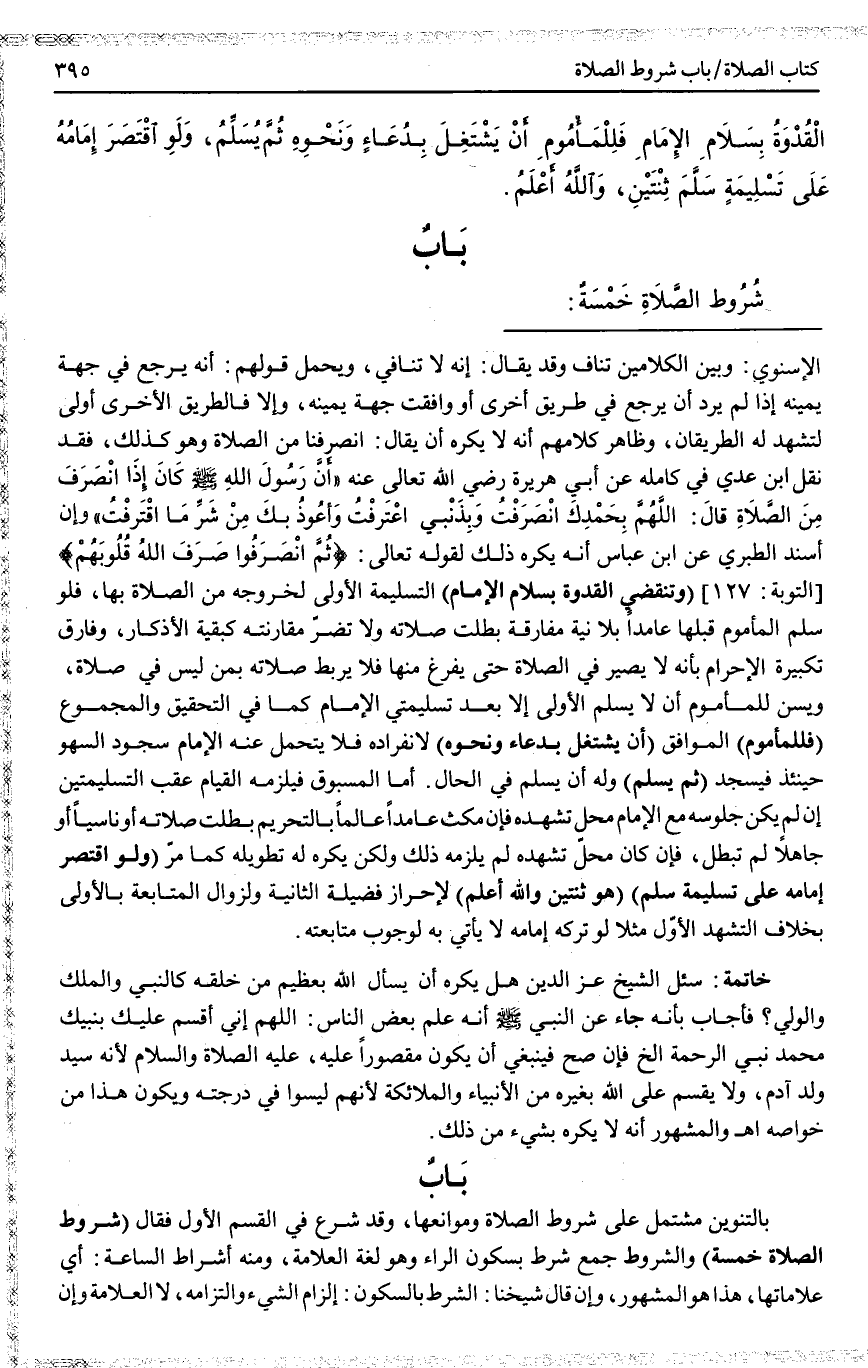 كتاب الصلاة/ باب شروط الصلاة ٣٩٥
الْقُدْوَةُ بِسَلَامِ الإِمَامِ فَلِلْمَأْمُومِ أَنْ يَشْتَغِلَ بِدُعَاءٍ وَنَحْوِهِ ثُمَّ يُسَلِّمُ، وَلَوِ ٱقْتَصَرَ إِمَامُهُ
عَلَى تَسْلِيمَةٍ سَلَّمَ ثِنْتَيْنِ، وَٱللَّهُ أَعْلَمُ.
بَابٌ
شُرُوط الصَّلَاةِ خَمْسَةٌ:
الإسنوي: وبين الكلامين تناف وقد يقال: إنه لا تنافي، ويحمل قولهم: أنه يرجع في جهة
يمينه إذا لم يرد أن يرجع في طريق أخرى أو وافقت جهة يمينه، وإلا فالطريق الأخرى أولى
لتشهد له الطريقان، وظاهر كلامهم أنه لا يكره أن يقال: انصرفنا من الصلاة وهو كذلك، فقد
نقل ابن عدي في كامله عن أبي هريرة رضي الله تعالى عنه «أَنَّ رَسُولَ اللهِ ﷺ كَانَ إِذَا انْصَرَفَ
مِنَ الصَّلَاةِ قالَ: اللَّهُمَّ بِحَمْدِكَ انْصَرَفْتُ وَبِذَنْبِي اعْتَرَفْتُ وَأَعُوذُ بِكَ مِنْ شَرِّ مَا اقْتَرفْتُ» وإن
أسند الطبري عن ابن عباس أنه يكره ذلك لقوله تعالى: ﴿ثُمَّ انْصَرَفُوا صَرَفَ اللهُ قُلُوبَهُمْ﴾
[التوبة: ١٢٧] (وتنقضي القدوة بسلام الإمام) التسليمة الأولى لخروجه من الصلاة بها، فلو
سلم المأموم قبلها عامداً بلا نية مفارقة بطلت صلاته ولا تضرّ مقارنته كبقية الأذكار، وفارق
تكبيرة الإحرام بأنه لا يصير في الصلاة حتى يفرغ منها فلا يربط صلاته بمن ليس في صلاة،
ويسن للمأموم أن لا يسلم الأولى إلا بعد تسليمتي الإمام كما في التحقيق والمجموع
(فللمأموم) الموافق (أن يشتغل بدعاء ونحوه) لانفراده فلا يتحمل عنه الإمام سجود السهو
حينئذ فيسجد (ثم يسلم) وله أن يسلم في الحال. أما المسبوق فيلزمه القيام عقب التسليمتين
إن لم يكن جلوسه مع الإمام محل تشهده فإن مكث عامداً عالماً بالتحريم بطلت صلاته أو ناسياً أو
جاهلاً لم تبطل، فإن كان محلّ تشهده لم يلزمه ذلك ولكن يكره له تطويله كما مرّ (ولو اقتصر
إمامه على تسليمة سلم) (هو ثنتين والله أعلم) لإحراز فضيلة الثانية ولزوال المتابعة بالأولى
بخلاف التشهد الأوّل مثلا لو تركه إمامه لا يأتي به لوجوب متابعته.
خاتمة: سئل الشيخ عز الدين هل يكره أن يسأل الله بعظيم من خلقه كالنبي والملك
والولي؟ فأجاب بأنه جاء عن النبي ﷺ أنه علم بعض الناس: اللهم إني أقسم عليك بنبيك
محمد نبي الرحمة الخ فإن صح فينبغي أن يكون مقصوراً عليه، عليه الصلاة والسلام لأنه سيد
ولد آدم، ولا يقسم على الله بغيره من الأنبياء والملائكة لأنهم ليسوا في درجته ويكون هذا من
خواصه اهـ والمشهور أنه لا يكره بشيء من ذلك.
بَابٌ
بالتنوين مشتمل على شروط الصلاة وموانعها، وقد شرع في القسم الأول فقال (شروط
الصلاة خمسة) والشروط جمع شرط بسكون الراء وهو لغة العلامة، ومنه أشراط الساعة: أي
علاماتها، هذا هو المشهور، وإن قال شيخنا: الشرط بالسكون: إلزام الشيء والتزامه، لا العلامة وإن